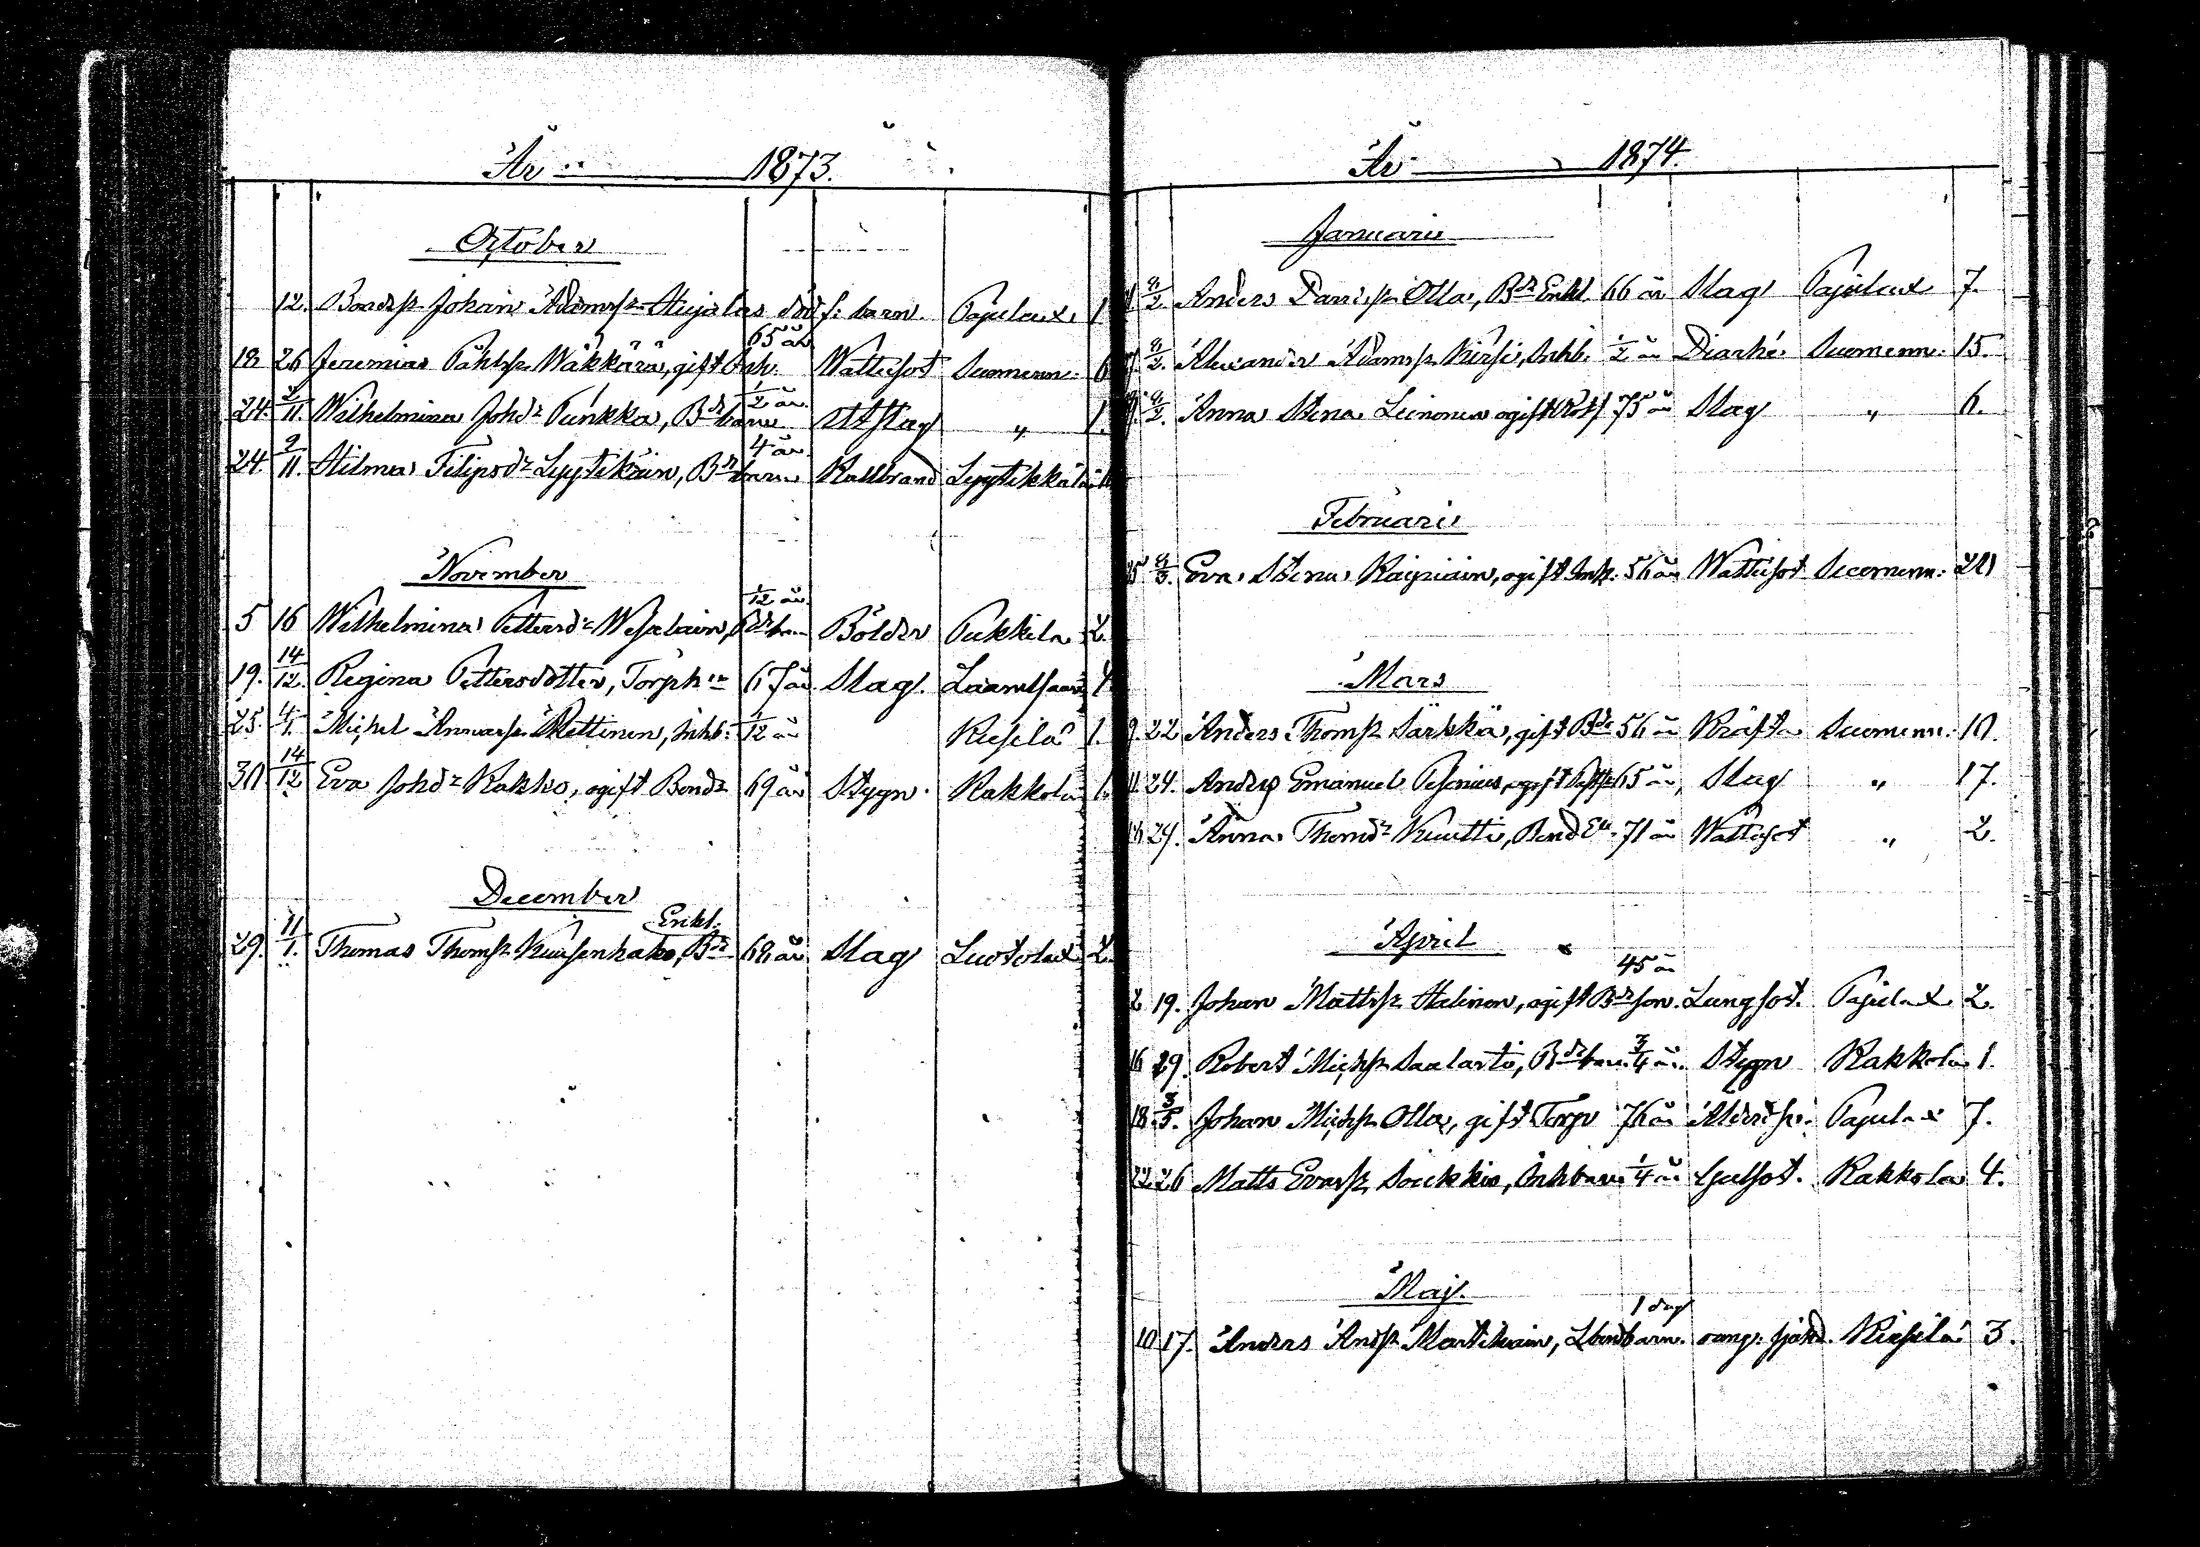 År 1873.
October
12. Bondes Johan Adamss Hujalas död f. barn. Pajulax. 1
18 26 Jeremias Påhlss Wäkkärä, gift Inh. 65 år Wattusot Suomenn. 6
24. 2/11. Wilhelmina Johdr Punkka, Bdebarn 1/2 år Utslag " 1.
24. 2/11. Hilma Filipsdr Lyytikäin, Bdebarn 4 år Kallbrand Lyytikkälä
November
5 16 Wilhelmina Pettersdr Wesalain, Bdebarn 1/12 år Bölder Pukkila 2.
19. 14/12. Regina Pettersdotter, Torph 67 år Slag.
25. 4/1. Michel 1/12 år Kiesilä 1.
30 14/12 Eva Johdr Kakko, ogift Bondr 69 år Stygn. Kakkola 1.
December
29. 11/1. Thomas Thomss Kuusenhako, Bde Enkl. 68 år Slag Luotolax 2.
År 1874.
Januarii
2. Anders Olla, Bde Enkl. 66 år Slag Pajulax 7.
2. Alexander Adamss Kirsi, Inhb. 1/2 år Diarhé. Suomenn. 15.
2. Anna Stina Leinonen ogift Rotf 75 år Slag " 6.
Februarii
25 3. Eva Stina Kaipiain, ogift Inh. 56 år Wattusot Suomenn. 20
Mars
9. 22 Anders Thomss Särkkä, gift Bde 56 år Kräfta Suomenn. 10.
11. 24. Anders Emanuel 65 år, Slag " 17.
29. Anna Thomdr Kuutti, Bond 71 år Wattusot " 2.
April
2 19. Johan Mattss Halinen, ogift Bdeson. 45 år Lungsot. Pajulax 2.
16 29. Robert Michss Saalasto, Bdebarn. 3/4 år. Stygn Kakkola 1.
18. 3/5. Johan Michss Olla, gift Torp 76 år Ålderdr. Pajulax 7.
22 26 Matts Evass Soukkio, Inhbarn 1/4 år Gulsot. Kakkola 4.
Maj.
10 17. Anders Andss Martikain, Lbondbarn. 1 dag Kiesilä 3.